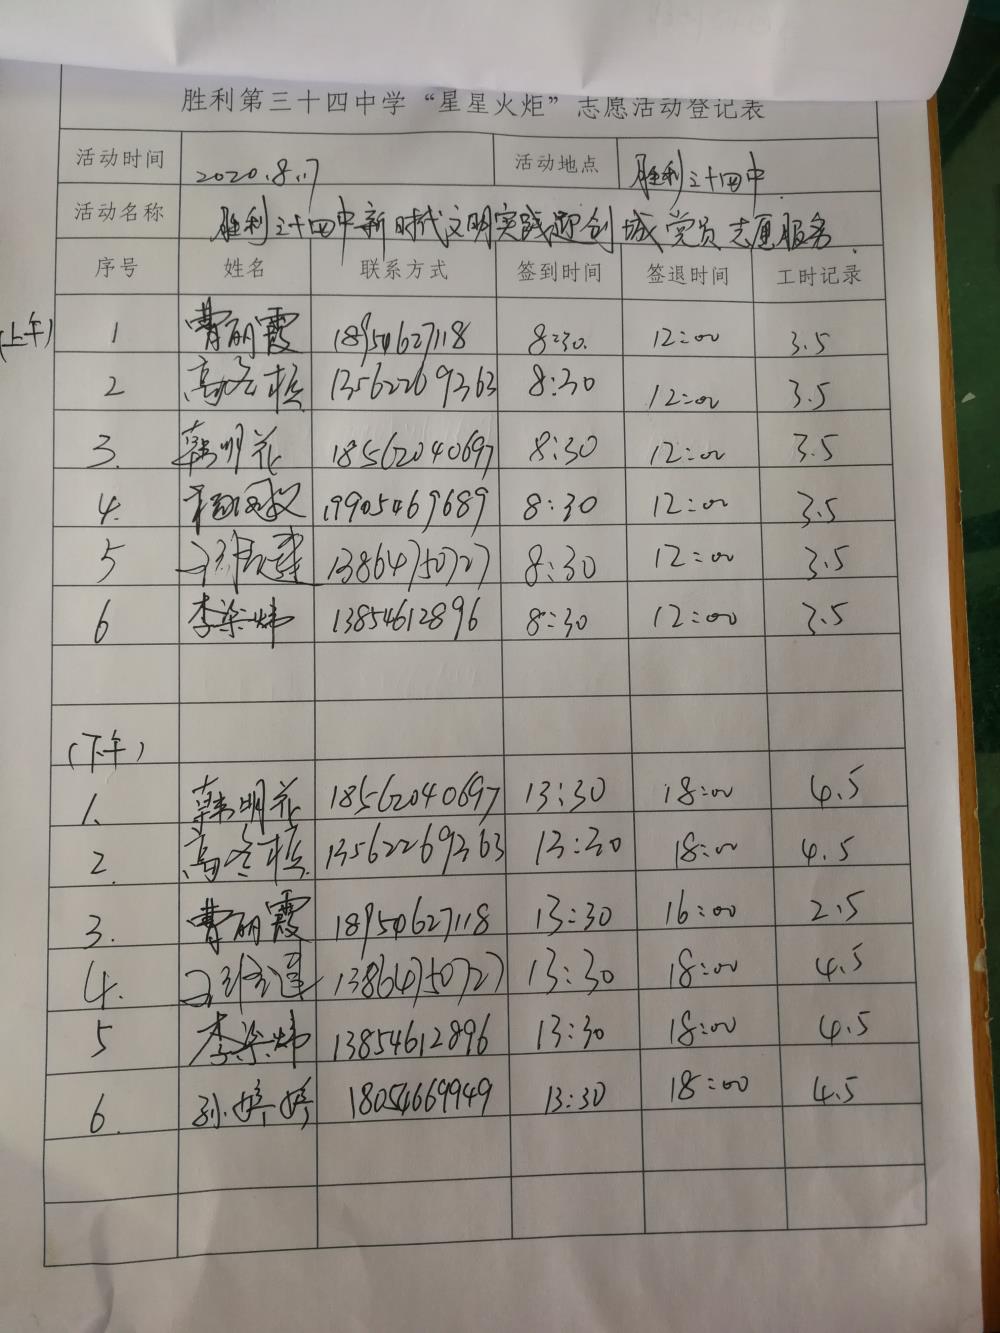 胜利第三十四中学“星星火炬”志愿活动登记表
活动时间 2020.8.17 活动地点 胜利三十四中
活动名称 胜利三十四中新时代文明实践迎创城党员志愿服务
序号 姓名 联系方式 签到时间 签退时间 工时记录
(上午) 1 曹丽霞 18950627118 8:30. 12:00 3.5
2 高冬梅 13562269363 8:30 12:00 3.5
3. 韩明花 18562040697 8:30 12:00 3.5
4. 19905469689 8:30 12:00 3.5
5 13864750727 8:30 12:00 3.5
6 李梁炜 13854612896 8:30 12:00 3.5
(下午)
1. 韩明花 18562040697 13:30 18:00 4.5
2. 高冬梅 13562269363 13:30 18:00 4.5
3. 曹丽霞 18950627118 13:30 16:00 2.5
4. 13864750727 13:30 18:00 4.5
5 李梁炜 13854612896 13:30 18:00 4.5
6. 孙婷婷 18054669949 13:30 18:00 4.5